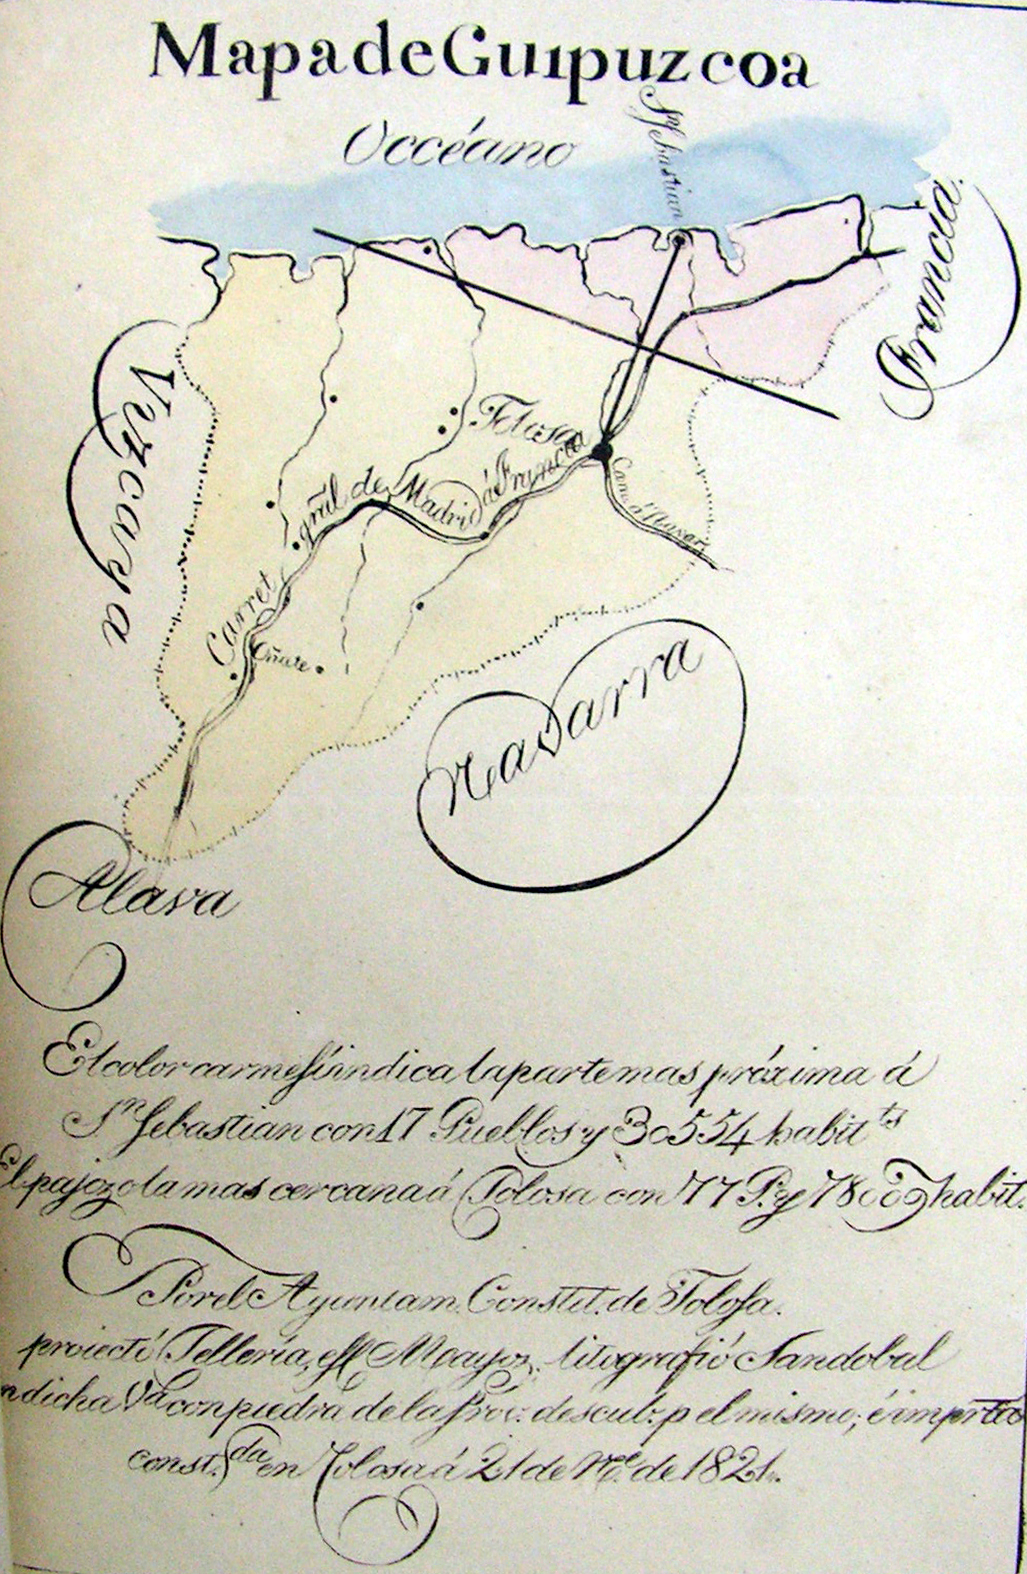 Mapa de Guipuzcoa
Occéano
Sn Sebastian
Francia.
Vizcaya
Tolosa
Carret gñal de Madrid á Francia
Cam. á Navar.
Oñate
Navarra
Alava
El color carmesí indica la parte mas próxima á
Sn Sebastian con 17 Pueblos y 30554 habitts
El pajozo la mas cercana á Tolosa con 77 P. y habit.
Por el Ayuntam. Constit. de Tolosa.
proiectó Tellería, litografió Sandobal
en dicha Va con piedra de la Prov. descub. p el mismo; é
const. da en Tolosa á 21 de de 1821.